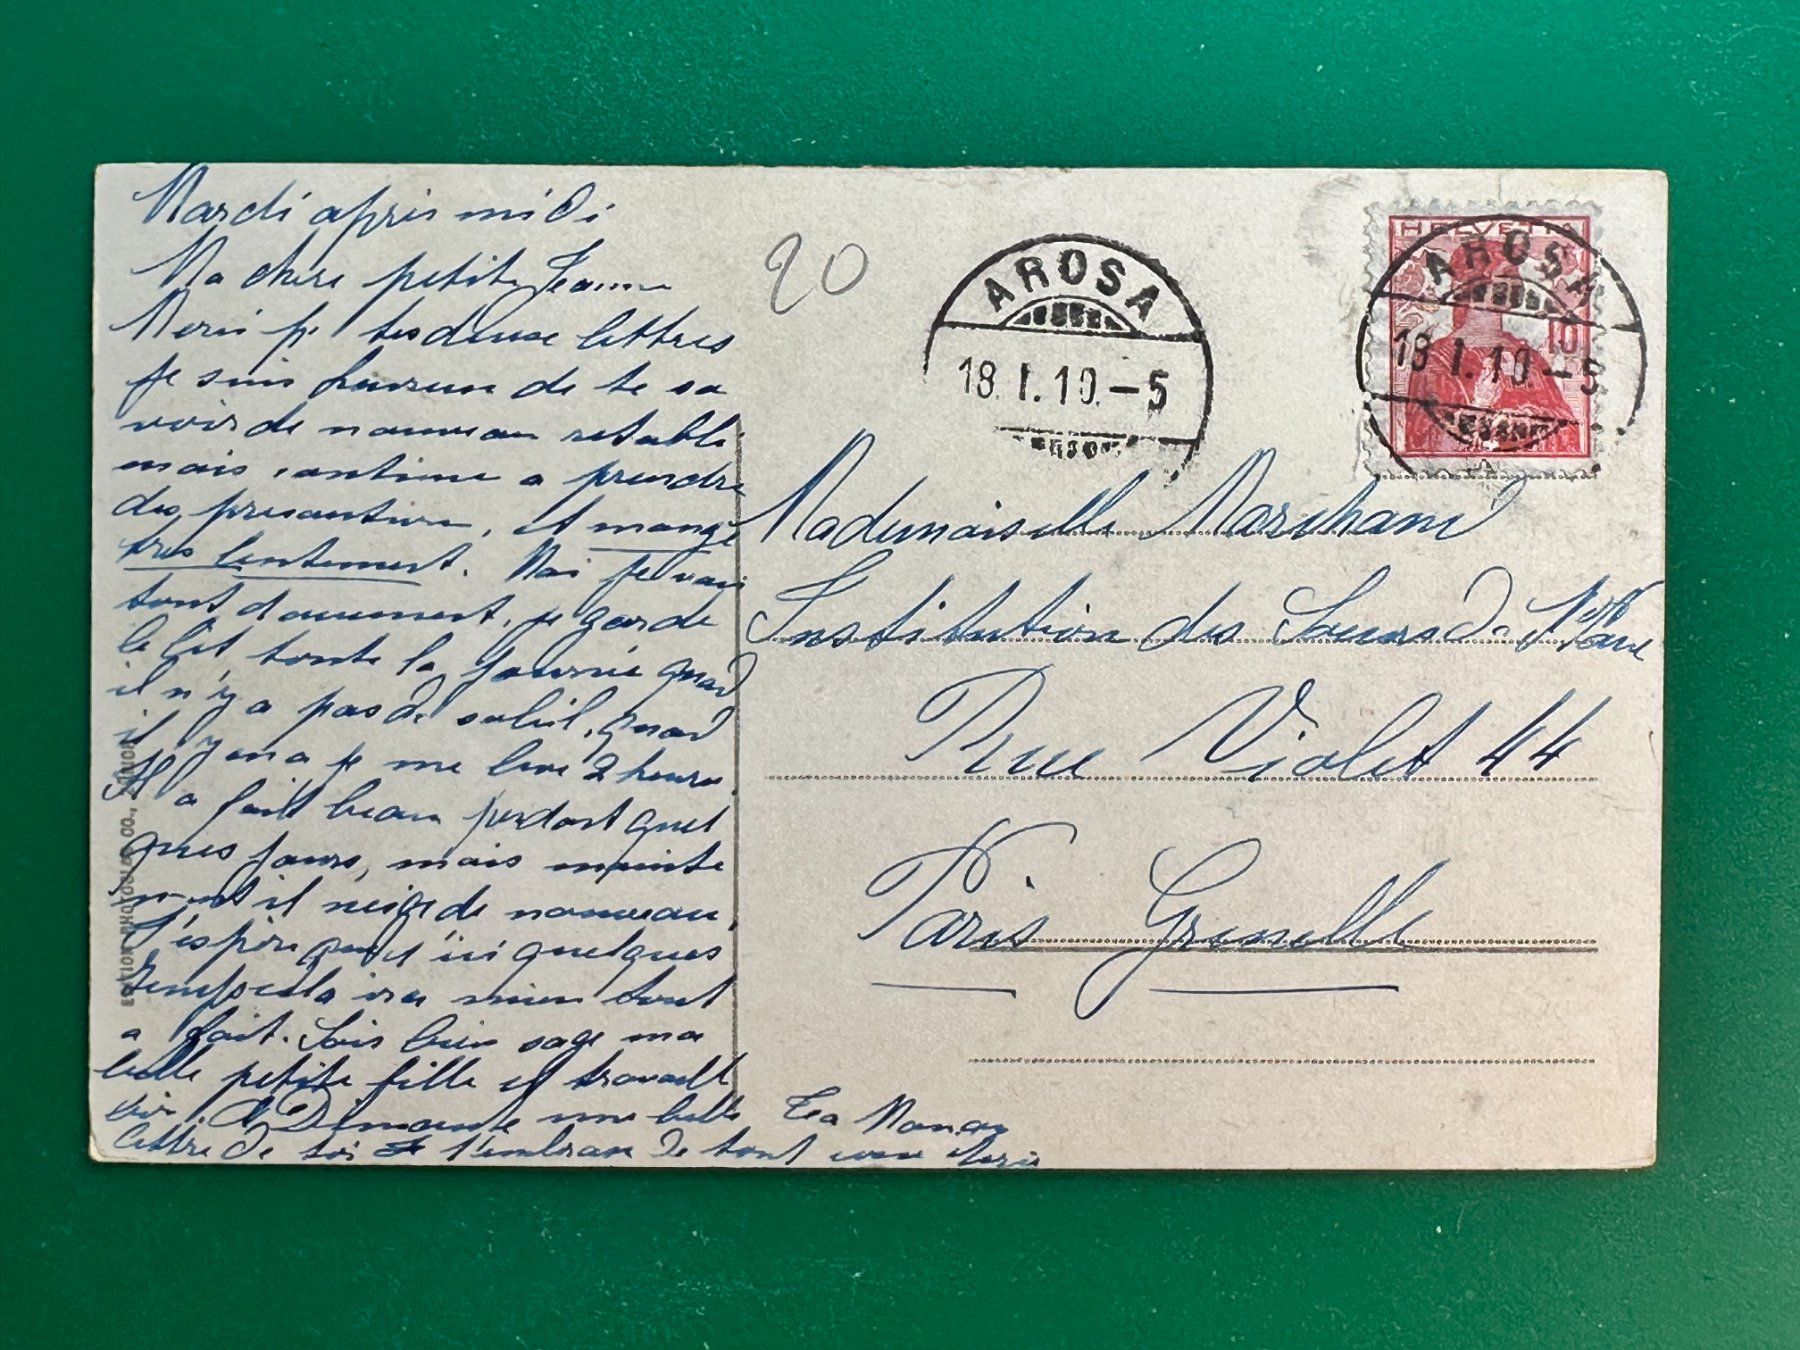 Mardi après midi
Ma chère petite Jeanne
Merci pr tes deux lettres
je suis heureuse de te sa
voir de nouveau retablie
mais continue a prendre
des precautions, et mange
tres lentement. Moi je vais
tout doucement, je garde
le lit toute la journée quand
il n'y a pas de soleil, quand
il y en a je me leve 2 heures
Il a fait beau pendant quel
ques jours, mais mainte
nant il neige de nouveau.
J'espère que d'ici quelques
temps cela ira mieux tout
a fait. Sois bien sage ma
belle petite fille et travaille
bien. A Dimanche une belle
lettre de toi Je t'embrasse de tout mon cœur
Ta Maman
20
AROSA
18.I.10.-5
HELVETIA
10
AROSA
18.I.10.-5
Mademoiselle Marchand
Institution des Soeurs de Notre
Dame
Rue Violet 44
Paris Grenelle